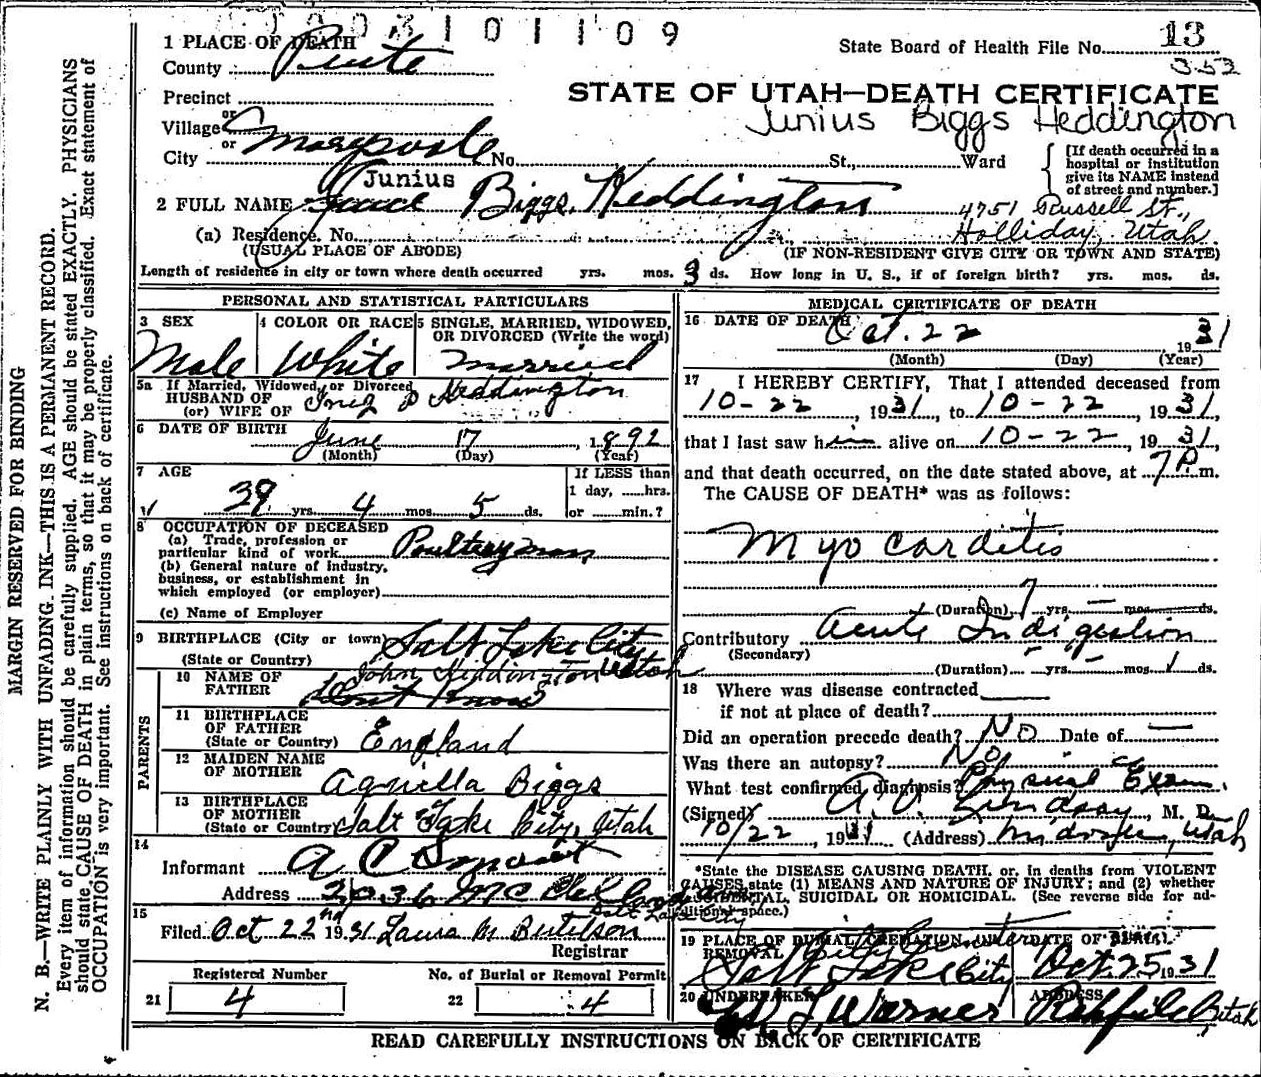 0003101109
1 PLACE OF DEATH
State Board of Health File No. 13
County Piute
352
Precinct
STATE OF UTAH—DEATH CERTIFICATE
or
Village
Junius Biggs Heddington
or
City Marysvale No. St., Ward
[If death occurred in a hospital or institution give its NAME instead of street and number.]
Junius
2 FULL NAME Biggs Heddington
4751 Russell St.,
(a) Residence. No. Holliday, Utah
(USUAL PLACE OF ABODE) (IF NON-RESIDENT GIVE CITY OR TOWN AND STATE)
Length of residence in city or town where death occurred yrs. mos. 3 ds. How long in U. S., if of foreign birth? yrs. mos. ds.
PERSONAL AND STATISTICAL PARTICULARS
3 SEX
Male
4 COLOR OR RACE
White
5 SINGLE, MARRIED, WIDOWED, OR DIVORCED (Write the word)
married
5a If Married, Widowed, or Divorced
HUSBAND OF
(or) WIFE OF Inez P Heddington
6 DATE OF BIRTH
June 17, 1892
(Month) (Day) (Year)
7 AGE
39 yrs. 4 mos. 5 ds.
If LESS than
1 day, ......hrs.
or ......min.?
8 OCCUPATION OF DECEASED
(a) Trade, profession or
particular kind of work Poultryman
(b) General nature of industry,
business, or establishment in
which employed (or employer)
(c) Name of Employer
9 BIRTHPLACE (City or town) Salt Lake City
(State or Country) Utah
PARENTS
10 NAME OF FATHER John Heddington
Dont Know
11 BIRTHPLACE
OF FATHER
(State or Country) England
12 MAIDEN NAME
OF MOTHER Agnella Biggs
13 BIRTHPLACE
OF MOTHER
(State or Country) Salt Lake City, Utah
14
Informant A C
Address 2036
Salt Lake City
15
Filed Oct 22nd 1931 Laura M Bertelson
Registrar
Registered Number
21 4
No. of Burial or Removal Permit
22 4
MEDICAL CERTIFICATE OF DEATH
16 DATE OF DEATH Oct. 22 1931
(Month) (Day) (Year)
17 I HEREBY CERTIFY, That I attended deceased from
10-22, 1931, to 10-22, 1931,
that I last saw him alive on 10-22, 1931,
and that death occurred, on the date stated above, at 7P m.
The CAUSE OF DEATH* was as follows:
Myocarditis
(Duration) 7 yrs. — mos. ds.
Contributory Acute Indigestion
(Secondary)
(Duration) — yrs. — mos. 1 ds.
18 Where was disease contracted
if not at place of death?
Did an operation precede death? No Date of —
Was there an autopsy? No
What test confirmed diagnosis? Physical Exam.
(Signed) Lindsay, M. D.
10/22, 1931 (Address) Midvale, Utah
*State the DISEASE CAUSING DEATH, or, in deaths from VIOLENT
CAUSES, state (1) MEANS AND NATURE OF INJURY; and (2) whether
ACCIDENTAL, SUICIDAL OR HOMICIDAL. (See reverse side for additional space.)
19 PLACE OF BURIAL, CREMATION, OR REMOVAL City Cemetery
Salt Lake City
DATE OF BURIAL
Oct. 25 1931
20 UNDERTAKER
Warner
ADDRESS
Richfield, Utah
READ CAREFULLY INSTRUCTIONS ON BACK OF CERTIFICATE
MARGIN RESERVED FOR BINDING
N. B.—WRITE PLAINLY WITH UNFADING INK—THIS IS A PERMANENT RECORD.
Every item of information should be carefully supplied. AGE should be stated EXACTLY. PHYSICIANS
should state CAUSE OF DEATH in plain terms, so that it may be properly classified. Exact statement of
OCCUPATION is very important. See instructions on back of certificate.